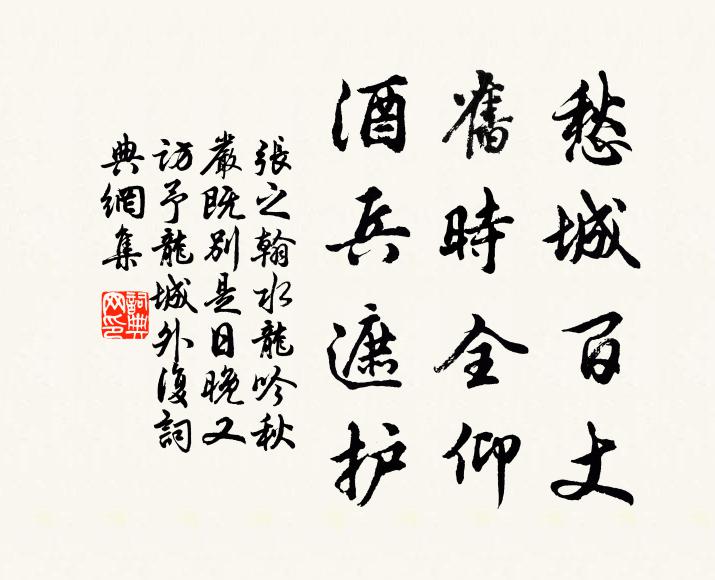 愁城百丈
舊時全仰
酒兵遮护
張之翰水龍吟秋
嚴既別是日晚又
訪予龍城外復詞
典網集
詞典网印